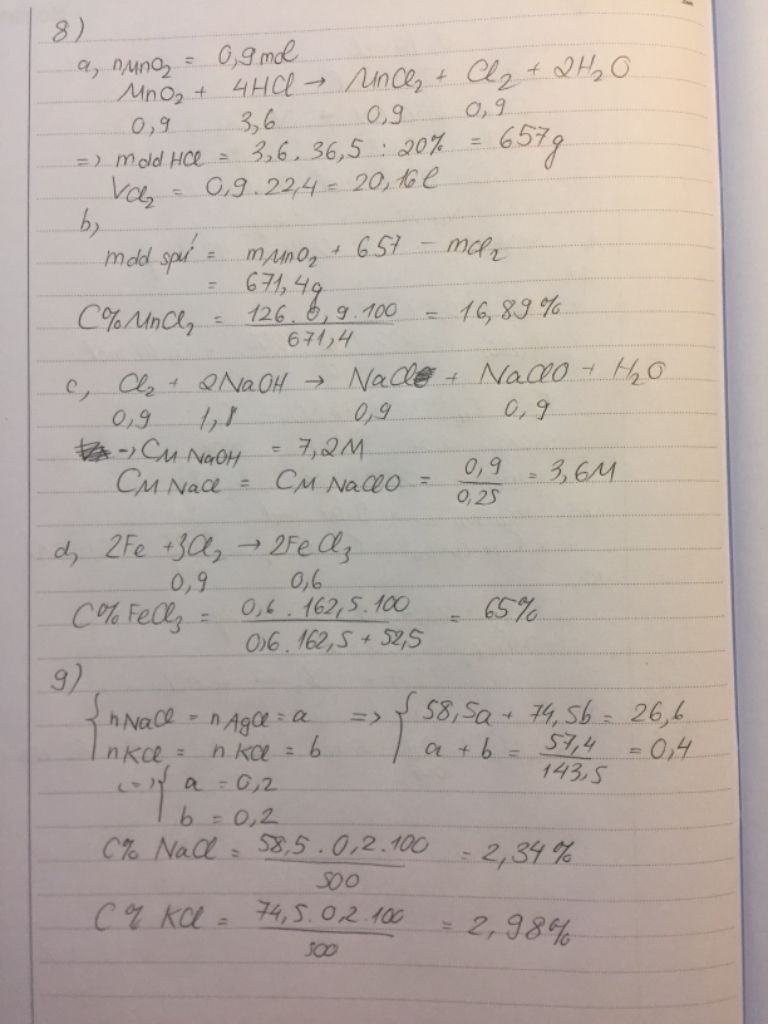 8)
a, nMnO₂ = 0,9 mol
MnO₂ + 4HCl → MnCl₂ + Cl₂ + 2H₂O
0,9 3,6 0,9 0,9
=> mdd HCl = 3,6 . 36,5 : 20% = 657g
VCl₂ = 0,9 . 22,4 = 20,16 l
b,
mdd spứ = mMnO₂ + 657 - mCl₂
= 671,4g
C%MnCl₂ = 126 . 0,9 . 100 / 671,4 = 16,89%
c, Cl₂ + 2NaOH → NaCl + NaClO + H₂O
0,9 1,8 0,9 0,9
-> CM NaOH = 7,2M
CM NaCl = CM NaClO = 0,9 / 0,25 = 3,6M
d, 2Fe + 3Cl₂ → 2FeCl₃
0,9 0,6
C%FeCl₃ = 0,6 . 162,5 . 100 / 0,6 . 162,5 + 52,5 = 65%
9)
{ nNaCl = nAgCl = a => { 58,5a + 74,5b = 26,6
nKCl = nKCl = b a + b = 57,4 / 143,5 = 0,4
<=> { a = 0,2
b = 0,2
C% NaCl = 58,5 . 0,2 . 100 / 500 = 2,34%
C% KCl = 74,5 . 0,2 . 100 / 500 = 2,98%